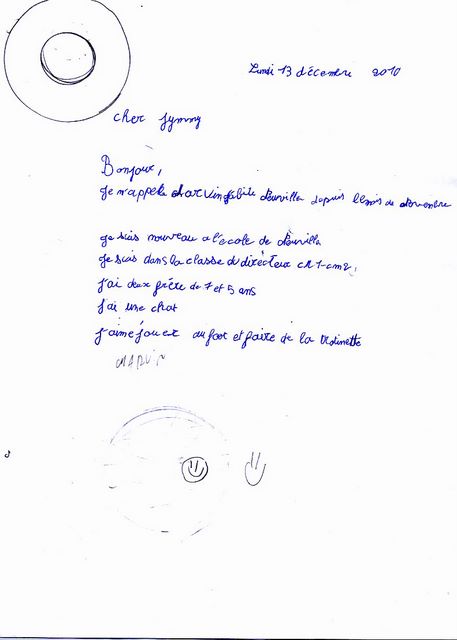 Lundi 13 décembre 2010
cher Jymmy
Bonjour,
Je m'appelle Marvin j'abite Deuvilla depuis le mois de Novembre
je suis nouveau a l'école de Deuvilla
je suis dans la classe du directeur cm1-cm2,
j'ai deux frère de 7 et 5 ans
j'ai une chat
j'aime jouer au foot et faire de la trotinette
MARVIN